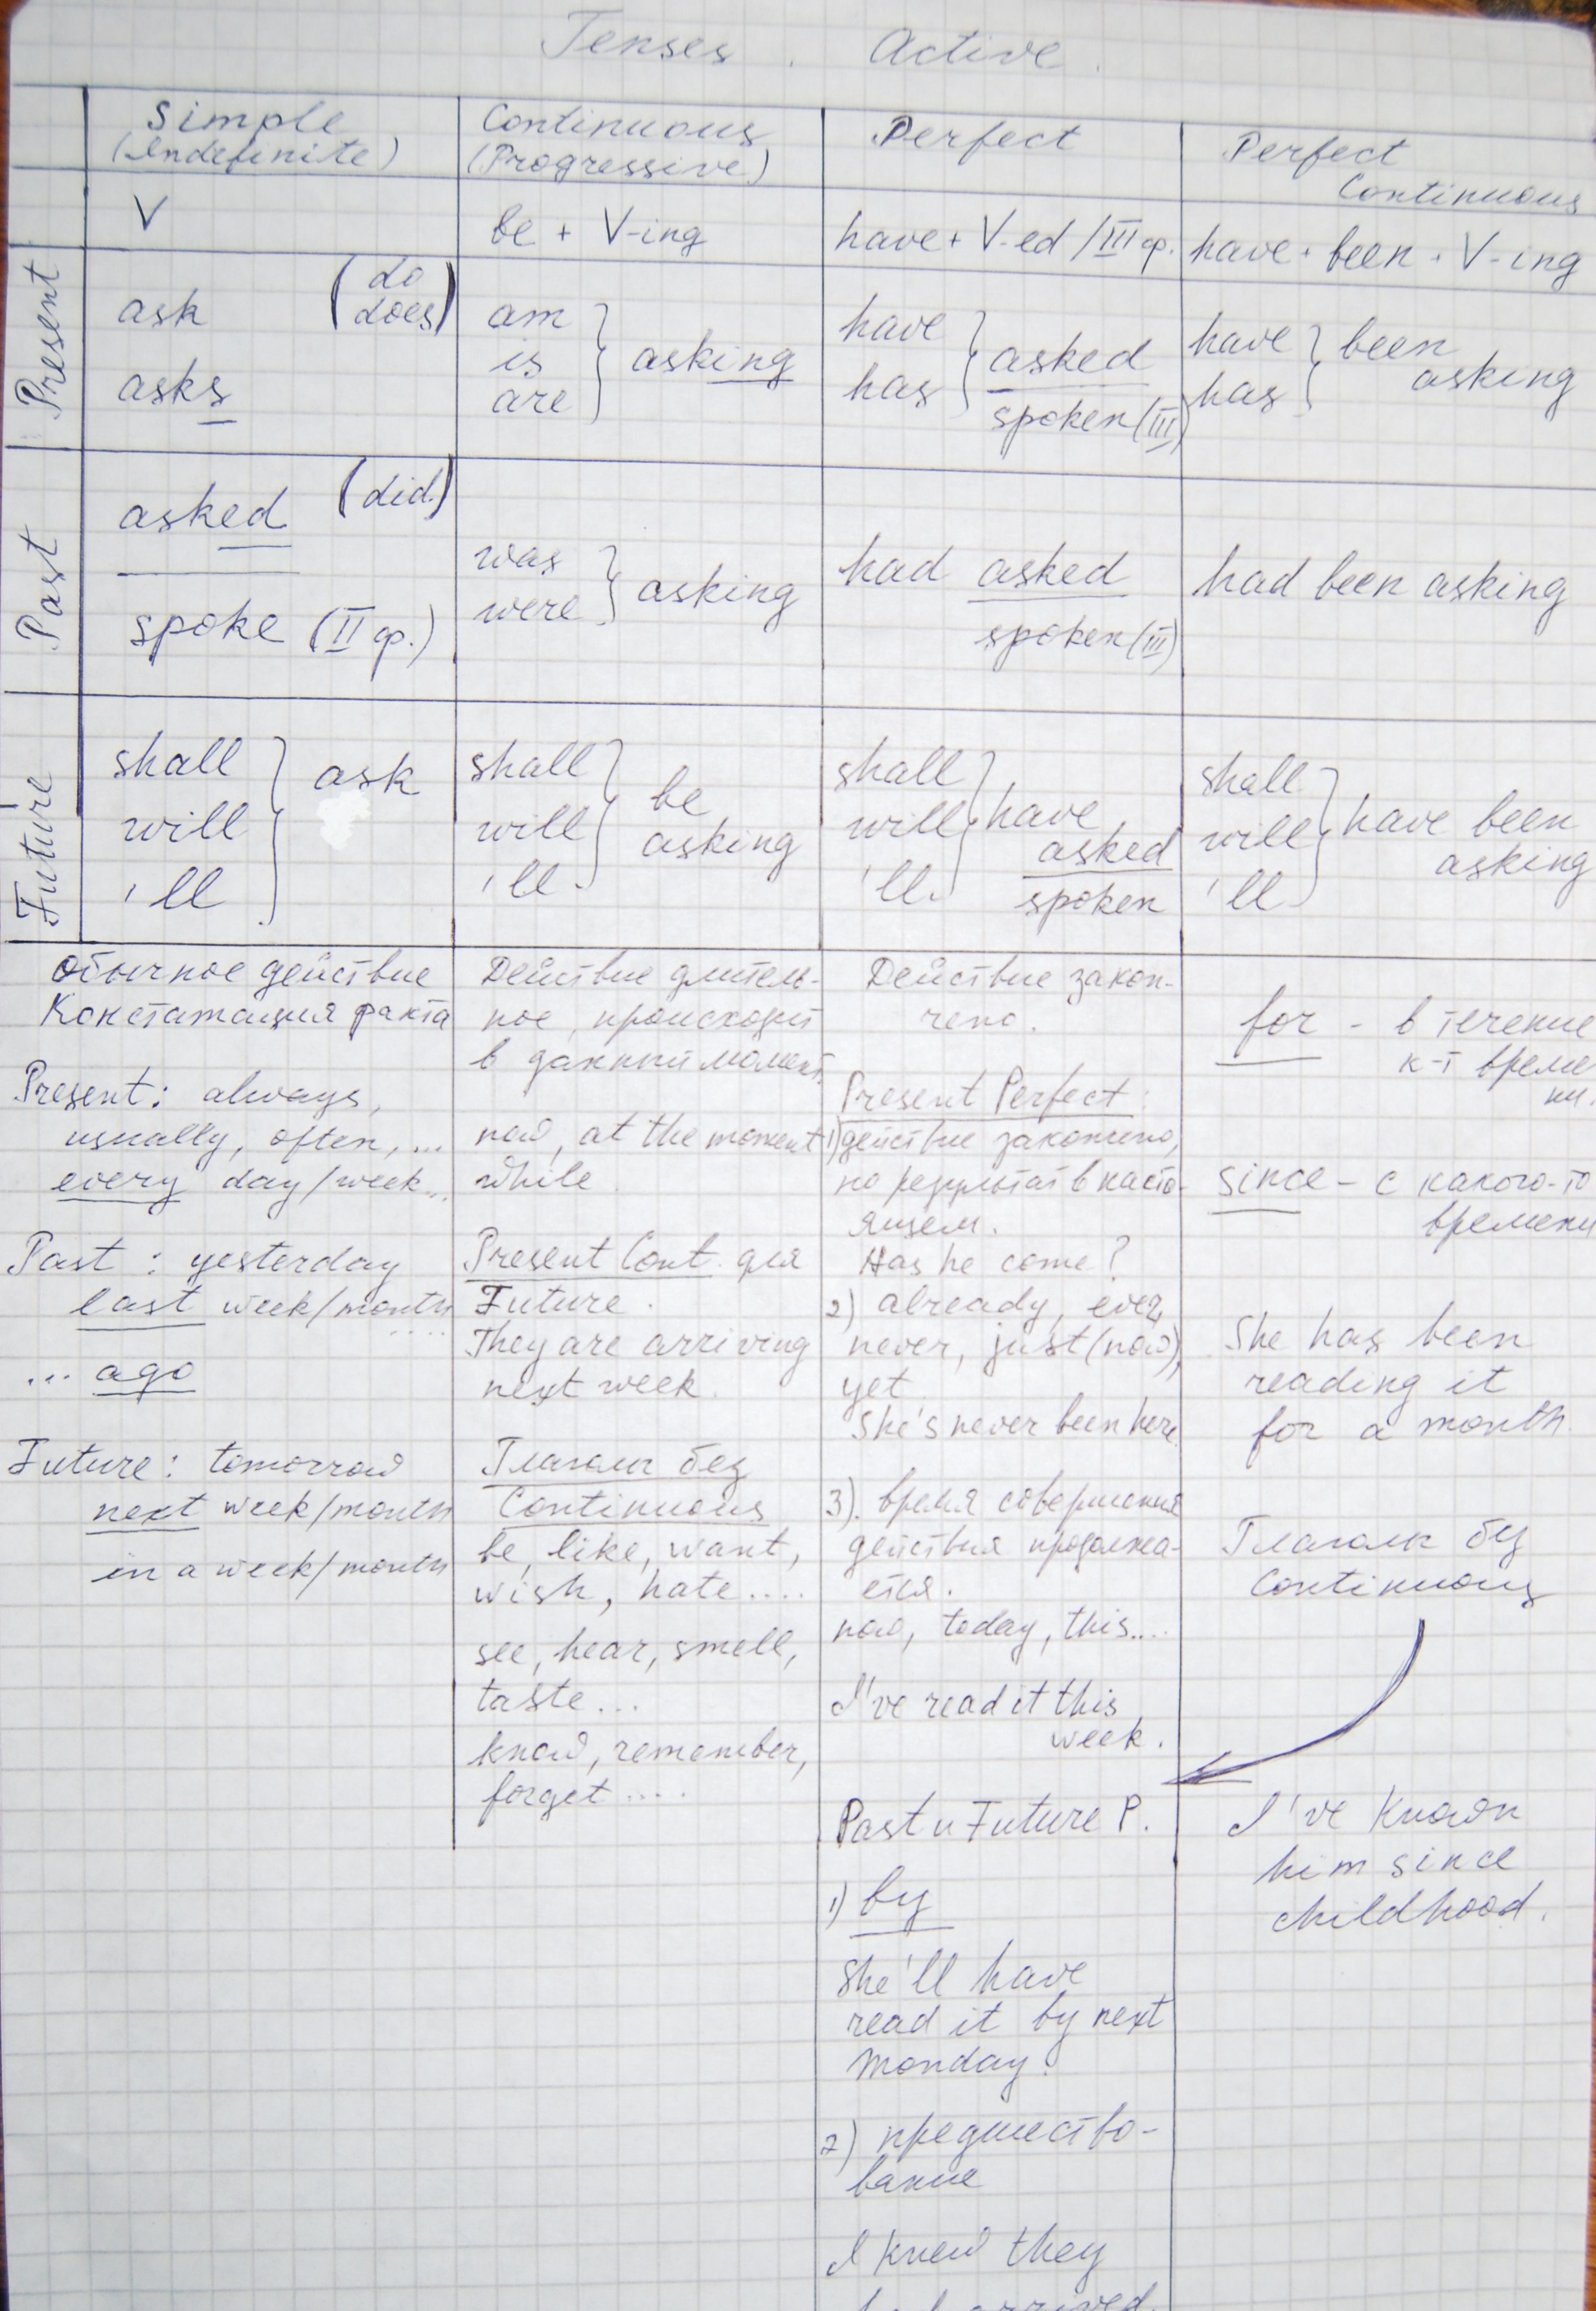 Tenses. Active.
Simple
(Indefinite)
Continuous
(Progressive)
Perfect
Perfect
Continuous
V
be + V-ing
have + V-ed / III ф.
have + been + V-ing
Present
ask
(do
does)
asks
am
is
are
asking
have
has
asked
spoken (III)
have
has
been
asking
Past
asked (did.)
spoke (II ф.)
was
were
asking
had asked
spoken (III)
had been asking
Future
shall
will
'll
ask
shall
will
'll
be
asking
shall
will
'll
have
asked
spoken
shall
will
'll
have been
asking
Обычное действие
Констатация факта
Present: always,
usually, often, ...
every day/week...
Past: yesterday
last week/month
....
... ago
Future: tomorrow
next week/month
in a week/month
Действие длитель-
ное, происходит
в данный момент.
now, at the moment
while
Present Cont. для
Future.
They are arriving
next week.
Глаголы без
Continuous
be, like, want,
wish, hate....
see, hear, smell,
taste...
know, remember,
forget....
Действие закон-
чено.
Present Perfect:
1) действие закончено,
но результат в насто-
ящем.
Has he come?
2) already, ever,
never, just (now),
yet
She's never been here.
3). время совершения
действия продолжа-
ется.
now, today, this....
I've read it this
week.
Past и Future P.
1) by
She'll have
read it by next
Monday.
2) предшество-
вание
I knew they
had arrived.
for - в течение
к-т време
ни.
since - с какого-то
времени
She has been
reading it
for a month.
Глаголы без
Continuous
I've known
him since
childhood.